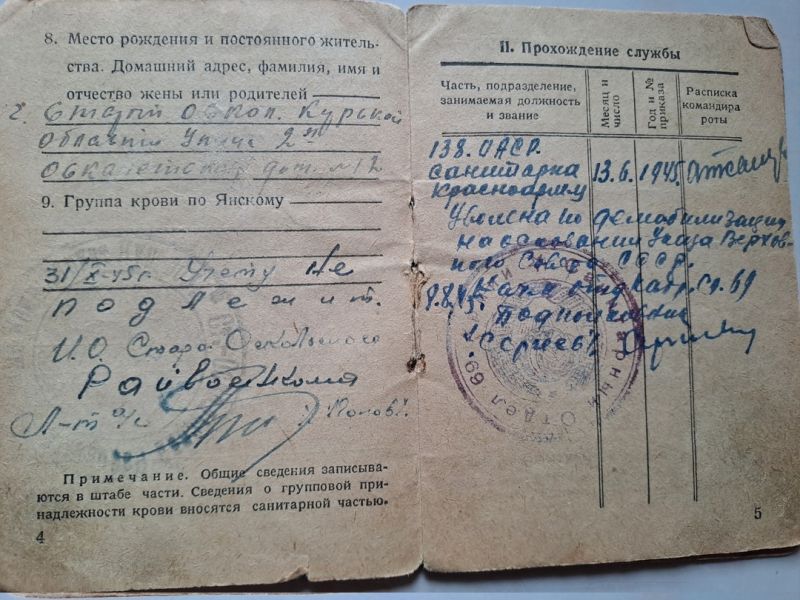 8. Место рождения и постоянного житель-
ства. Домашний адрес, фамилия, имя и
отчество жены или родителей
г. Старый Оскол. Курской
области Улица 2я
дом №12
9. Группа крови по Янскому
31/X-45г. Учету не
подлежит.
И.О. Старо Оскольского
Райвоенкома
Л-т а/с Попов
Примечание. Общие сведения записыва-
ются в штабе части. Сведения о групповой при-
надлежности крови вносятся санитарной частью.
4
II. Прохождение службы
Часть, подразделение,
занимаемая должность
и звание
Месяц и
число
Год и №
приказа
Расписка
командира
роты
138. ОАСР.
санитарка 13.6. 1945.
Красноармец
Уволена по демобилизации
на основании Указа Верхов-
ного Совета СССР.
9.8.45. Нач. отд. кадр. 69
Подполковник
Отдел 69
5